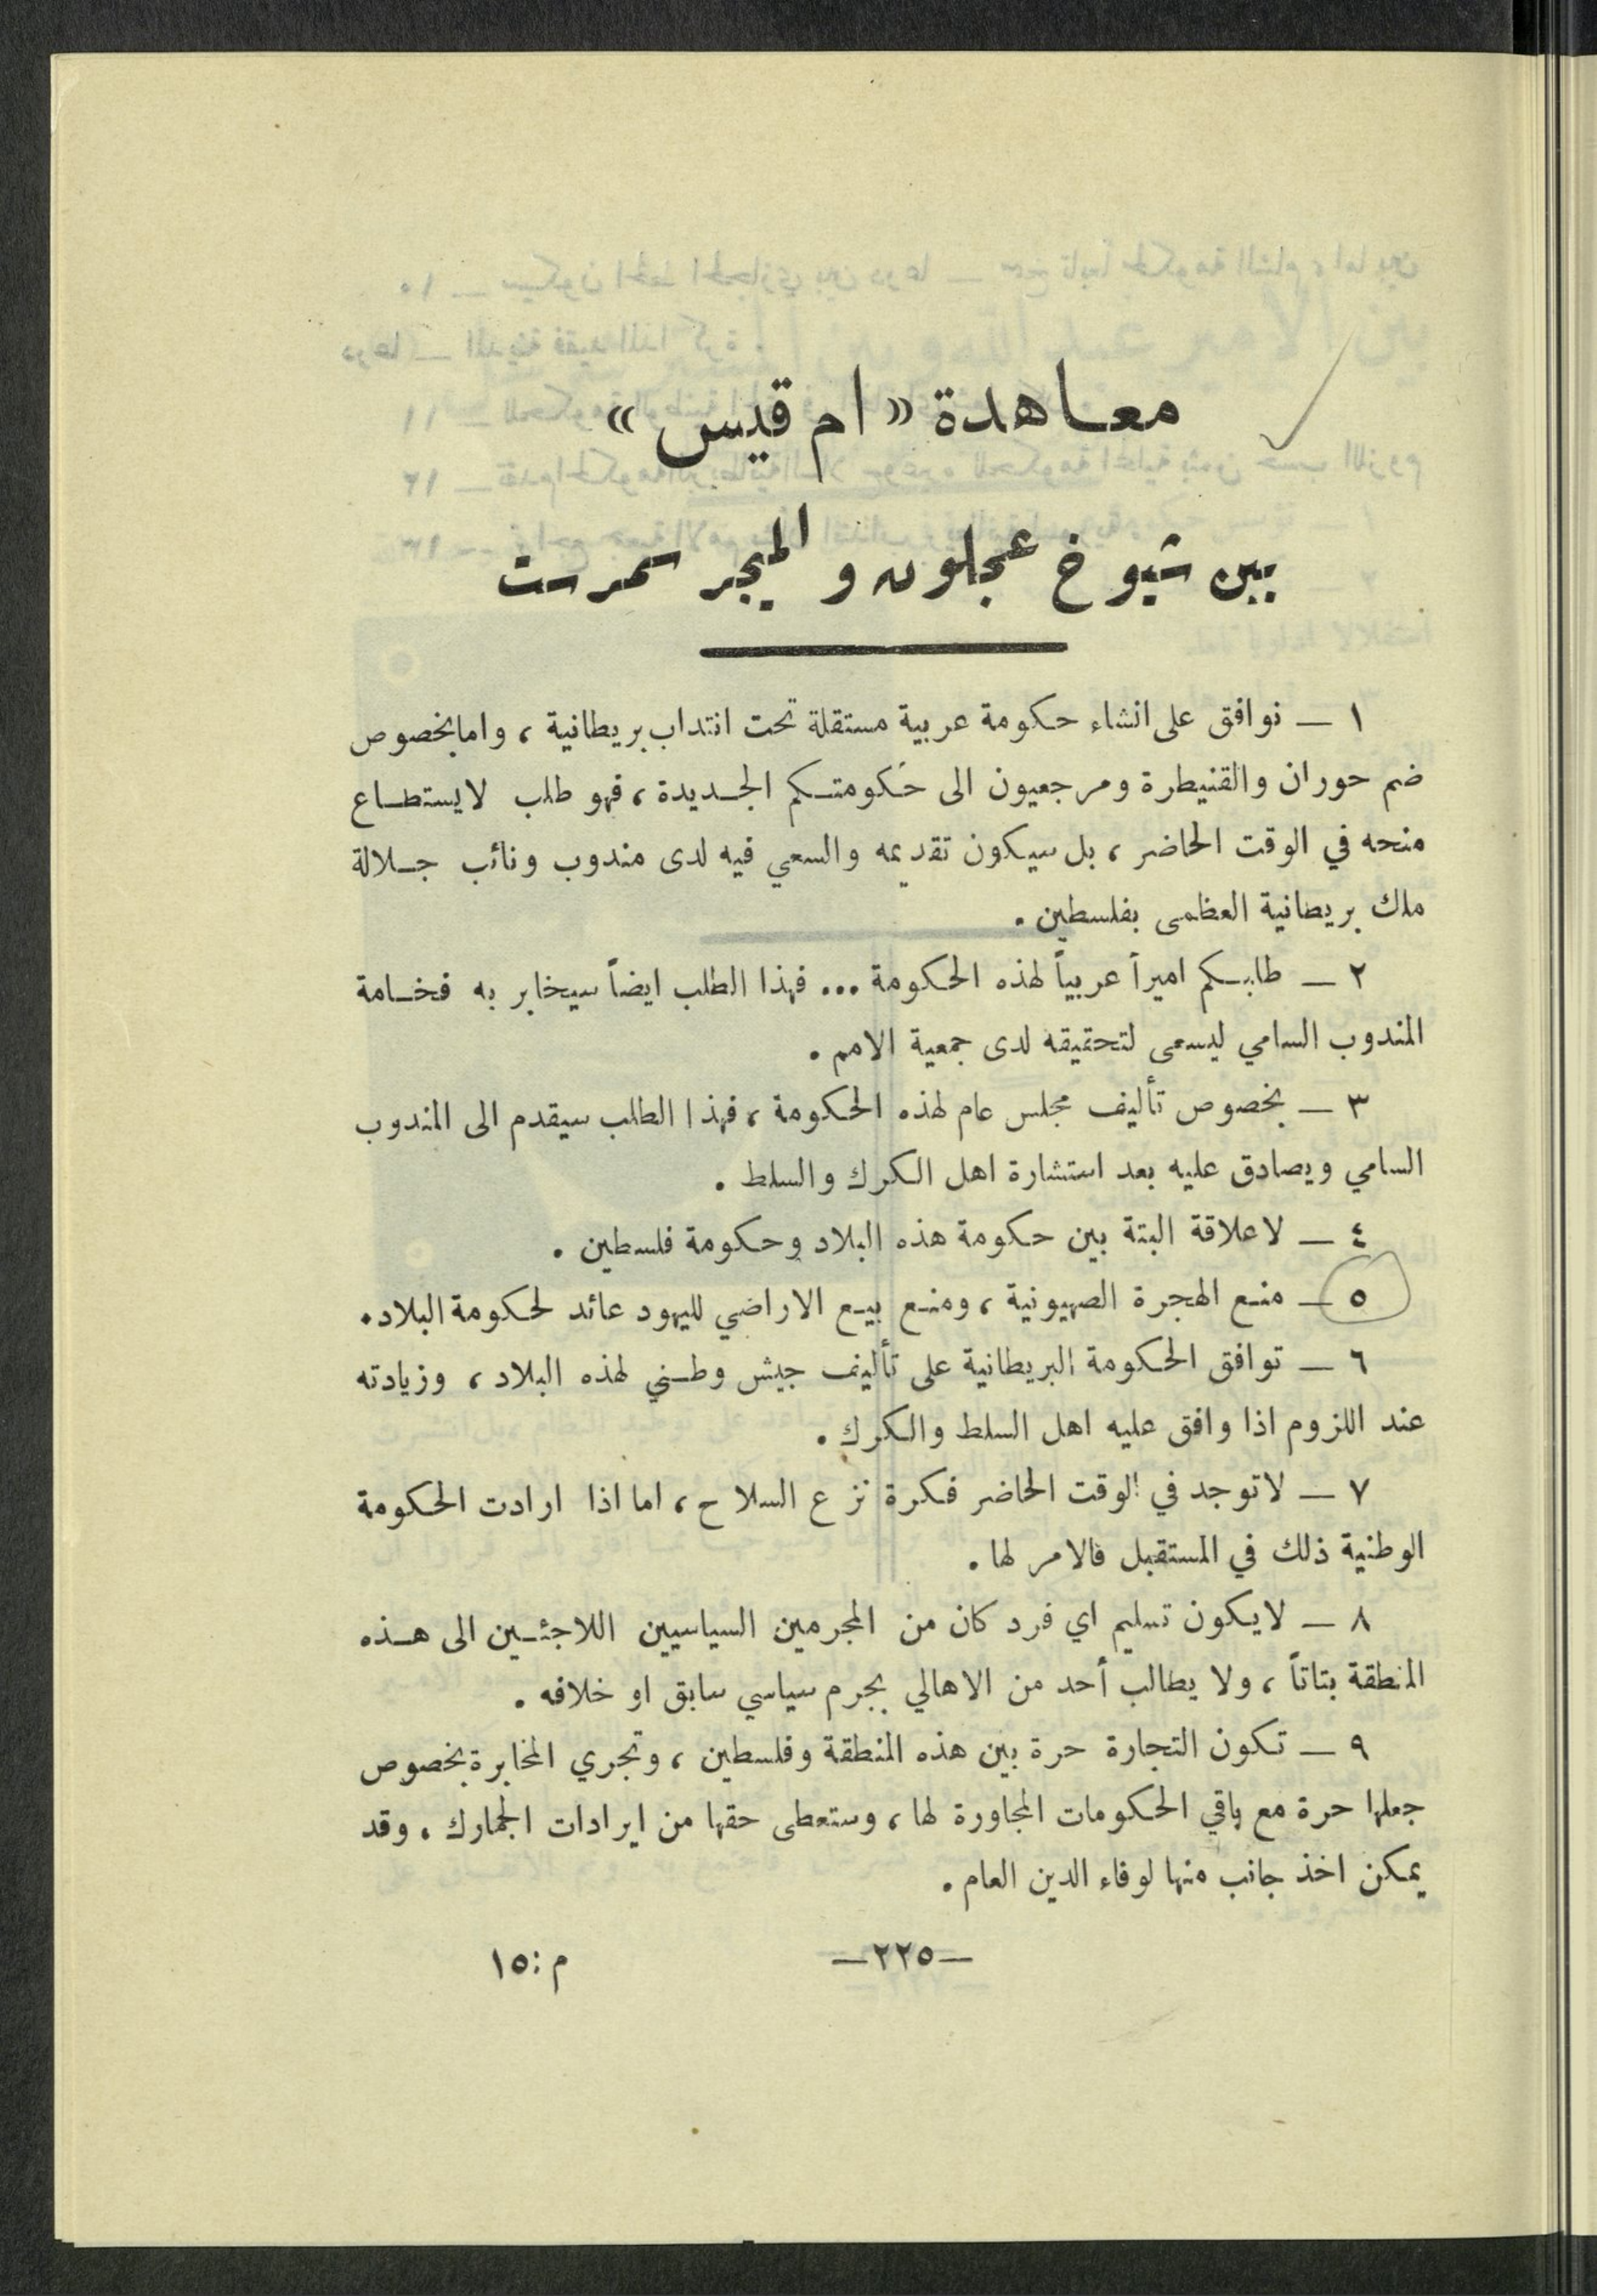 معاهدة «ام قيس»
بين شيوخ عجلون و الميجر سمرست
١ — نوافق على انشاء حكومة عربية مستقلة تحت انتداب بريطانية ، واما بخصوص
ضم حوران والقنيطرة ومرجعيون الى حكومتكم الجديدة ، فهو طلب لا يستطاع
منحه في الوقت الحاضر ، بل سيكون تقديمه والسعي فيه لدى مندوب ونائب جلالة
ملك بريطانية العظمى بفلسطين .
٢ — طلبكم اميراً عربياً لهذه الحكومة ... فهذا الطلب ايضاً سيخابر به فخامة
المندوب السامي ليسعى لتحقيقه لدى جمعية الامم .
٣ — بخصوص تأليف مجلس عام لهذه الحكومة ، فهذا الطلب سيقدم الى المندوب
السامي ويصادق عليه بعد استشارة اهل الكرك والسلط .
٤ — لا علاقة البتة بين حكومة هذه البلاد وحكومة فلسطين .
٥ — منع الهجرة الصهيونية ، ومنع بيع الاراضي لليهود عائد لحكومة البلاد .
٦ — توافق الحكومة البريطانية على تأليف جيش وطني لهذه البلاد ، وزيادته
عند اللزوم اذا وافق عليه اهل السلط والكرك .
٧ — لا توجد في الوقت الحاضر فكرة نزع السلاح ، اما اذا ارادت الحكومة
الوطنية ذلك في المستقبل فالامر لها .
٨ — لا يكون تسليم اي فرد كان من المجرمين السياسيين اللاجئين الى هذه
المنطقة بتاتاً ، ولا يطالب أحد من الاهالي بجرم سياسي سابق او خلافه .
٩ — تكون التجارة حرة بين هذه المنطقة وفلسطين ، وتجري المخابرة بخصوص
جعلها حرة مع باقي الحكومات المجاورة لها ، وستعطى حقها من ايرادات الجمارك ، وقد
يمكن اخذ جانب منها لوفاء الدين العام .
—٢٢٥— م : ١٥